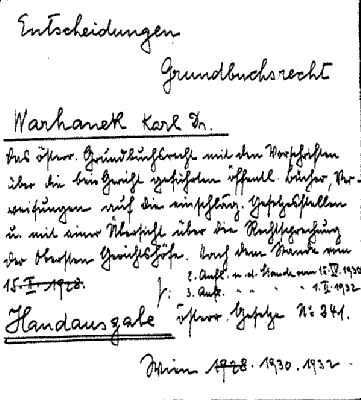 Entscheidungen
Grundbuchsrecht
Warhanek Karl Dr.
Das österr. Grundbuchsrecht mit den Vorschriften
über die bei Gericht geführten öffentl. Bücher, Ver-
weisungen auf die einschläg. Gesetzstellen
u. mit einer Übersicht über die Rechtsprechung
der Obersten Gerichtshöfe. Nach dem Stande vom
15. I. 1928. 2. Aufl. n. d. Stande vom 15. IV. 1930
3. Aufl. " " " 1. II. 1932
Handausgabe österr. Gesetze No 341.
Wien 1928. 1930. 1932.